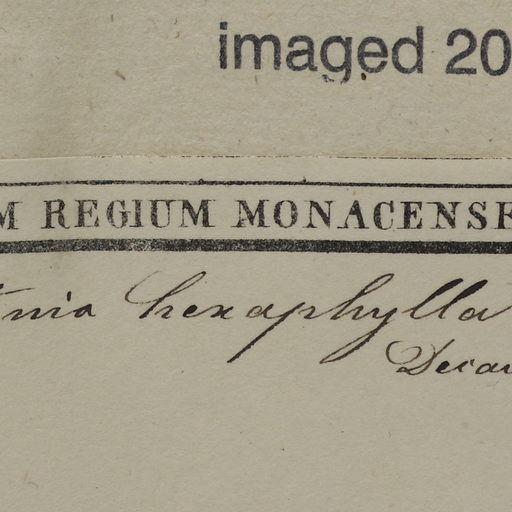 imaged 20
M REGIUM MONACENSE
nia hexaphylla
Decan